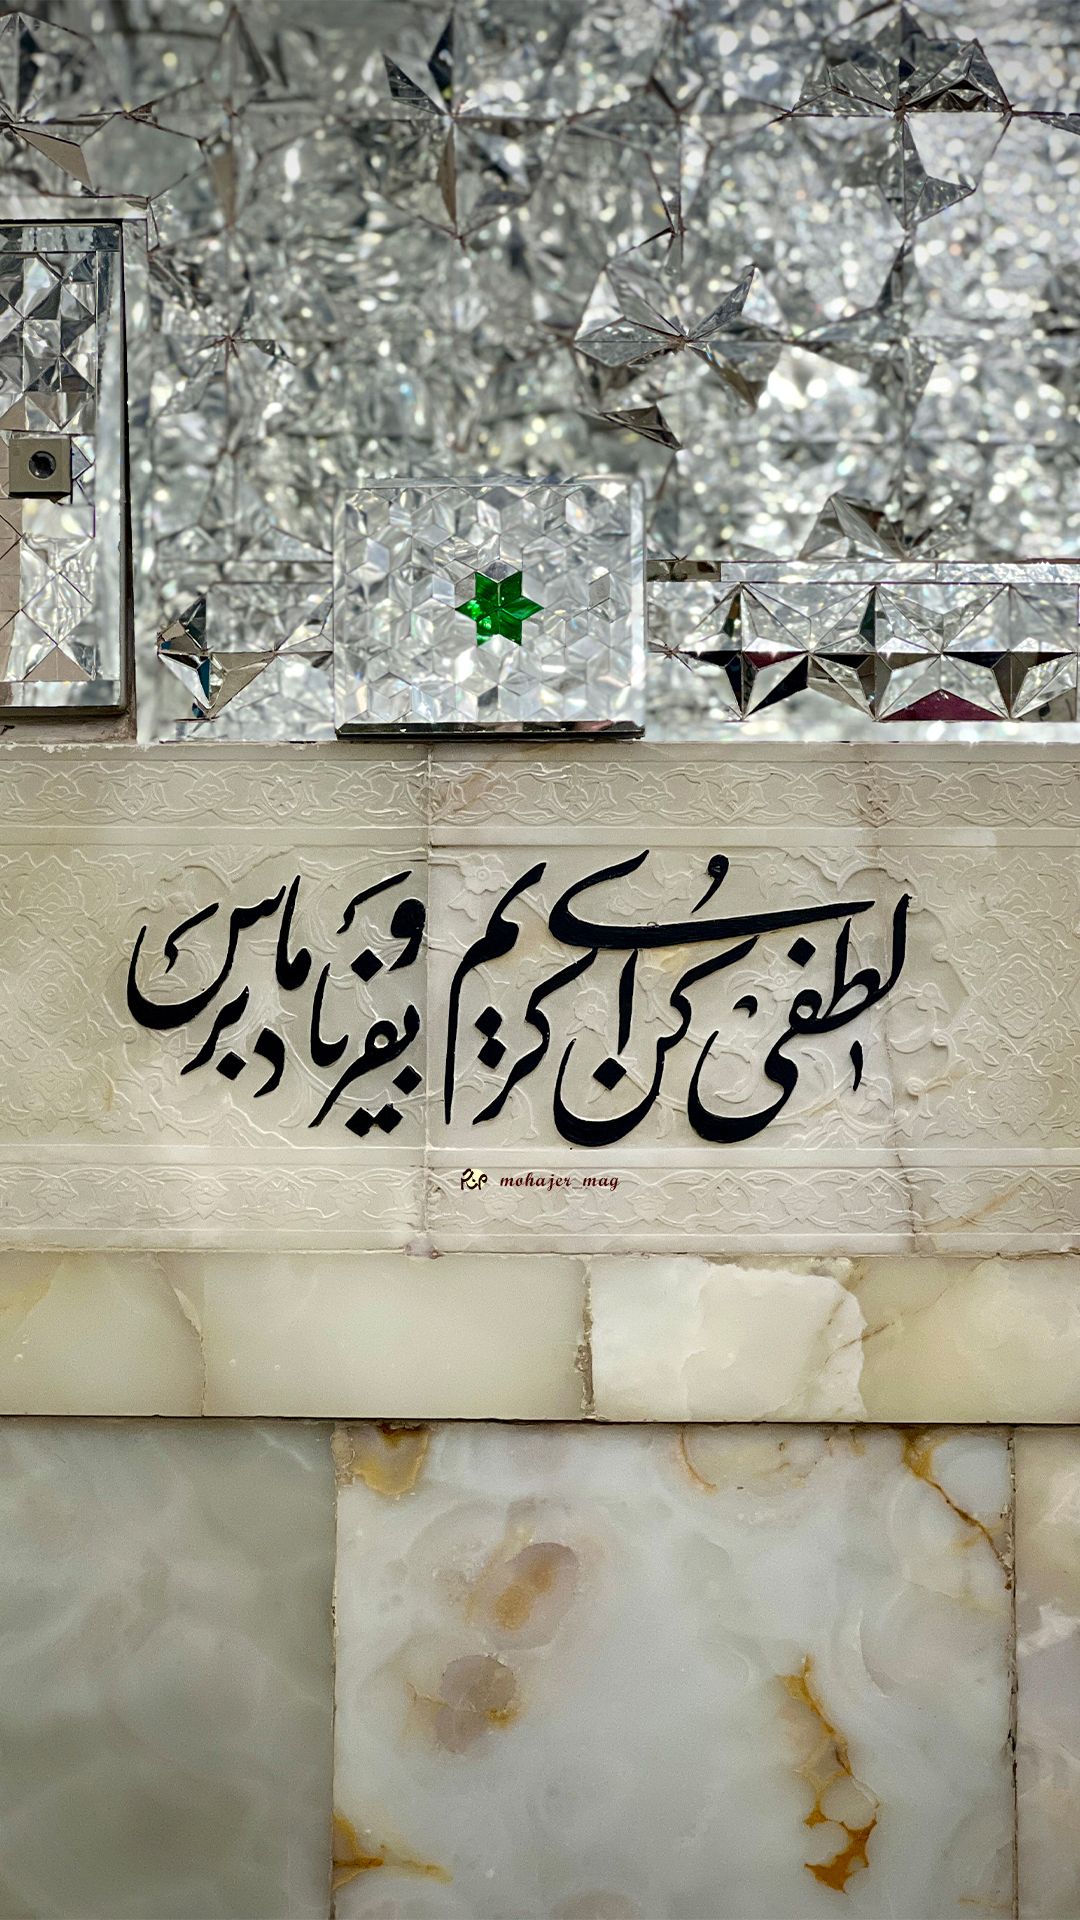 لطفی کن ای کریم و بفریاد ما برس
mohajer_mag